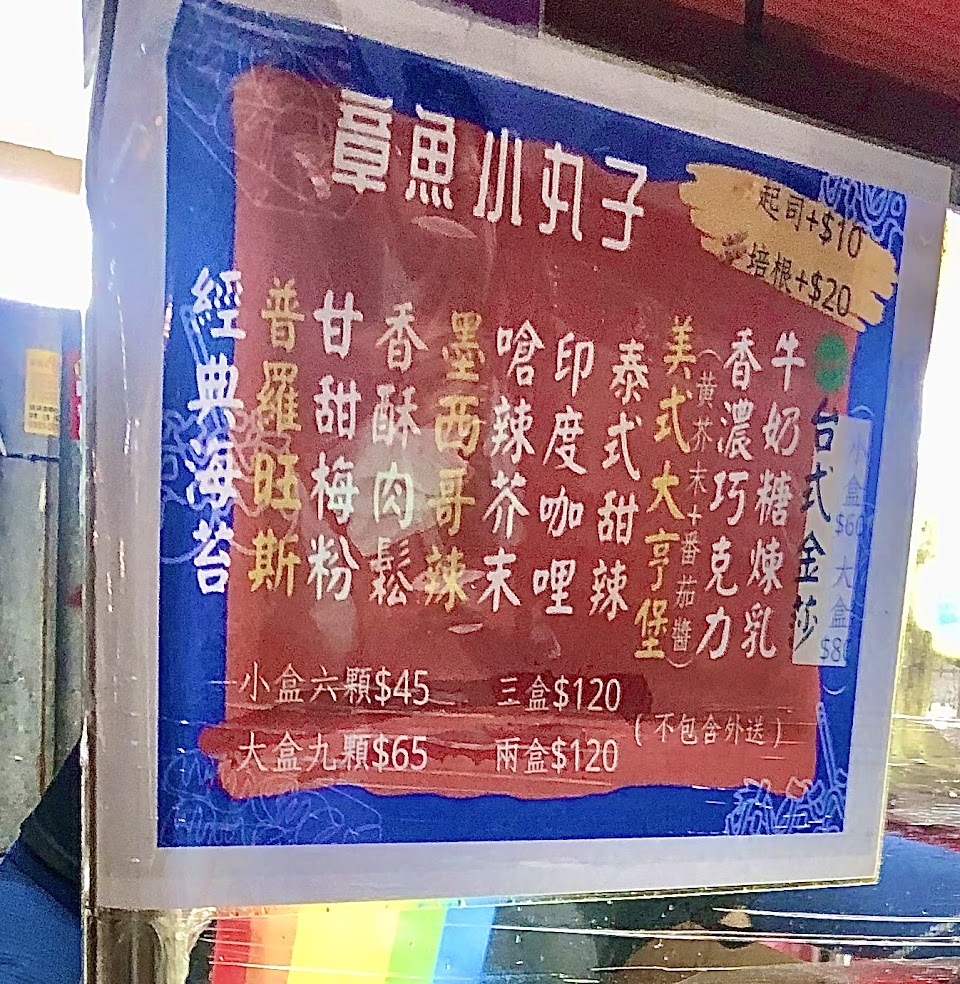 章魚小丸子
起司+$10
培根+$20
經典海苔
普羅旺斯
甘甜梅粉
香酥肉鬆
墨西哥辣
嗆辣芥末
印度咖哩
泰式甜辣
美式大亨堡
(黃芥末+番茄醬)
香濃巧克力
牛奶糖煉乳
台式金莎
小盒$60大盒$80
小盒六顆$45 三盒$120
大盒九顆$65 兩盒$120
(不包含外送)